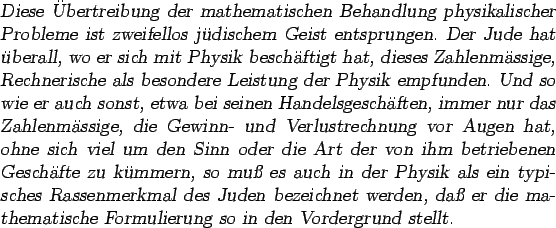 Diese Übertreibung der mathematischen Behandlung physikalischer
Probleme ist zweifellos jüdischem Geist entsprungen. Der Jude hat
überall, wo er sich mit Physik beschäftigt hat, dieses Zahlenmässige,
Rechnerische als besondere Leistung der Physik empfunden. Und so
wie er auch sonst, etwa bei seinen Handelsgeschäften, immer nur das
Zahlenmässige, die Gewinn- und Verlustrechnung vor Augen hat,
ohne sich viel um den Sinn oder die Art der von ihm betriebenen
Geschäfte zu kümmern, so muß es auch in der Physik als ein typi-
sches Rassenmerkmal des Juden bezeichnet werden, daß er die ma-
thematische Formulierung so in den Vordergrund stellt.